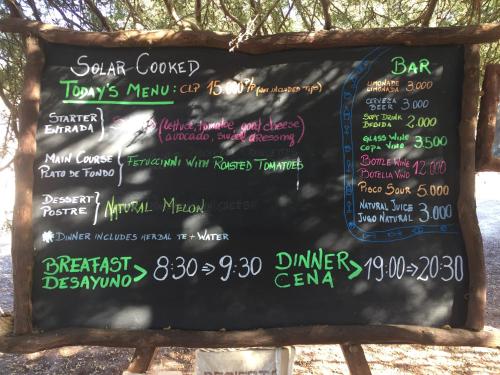 SOLAR-COOKED
TODAY'S MENU: CLP 15.000
STARTER
ENTRADA
(lettuce, tomatoe, goat cheese
avocado, sweet dressing
MAIN COURSE
PLATO DE FONDO
FETUCCINNI WITH ROASTED TOMATOES
DESSERT
POSTRE
NATURAL MELON
* DINNER INCLUDES HERBAL TE + WATER
BREAFAST
DESAYUNO > 8:30 ⇒ 9:30
DINNER
CENA > 19:00 ⇒ 20:30
BAR
LIMONADE
LIMONADA 3.000
CERVEZA
BEER 3.000
SOFT DRINK
BEBIDA 2.000
GLASS WINE
COPA VINO 3.500
BOTTLE WINE
BOTELLA VINO 12.000
PISCO SOUR 5.000
NATURAL JUICE
JUGO NATURAL 3.000